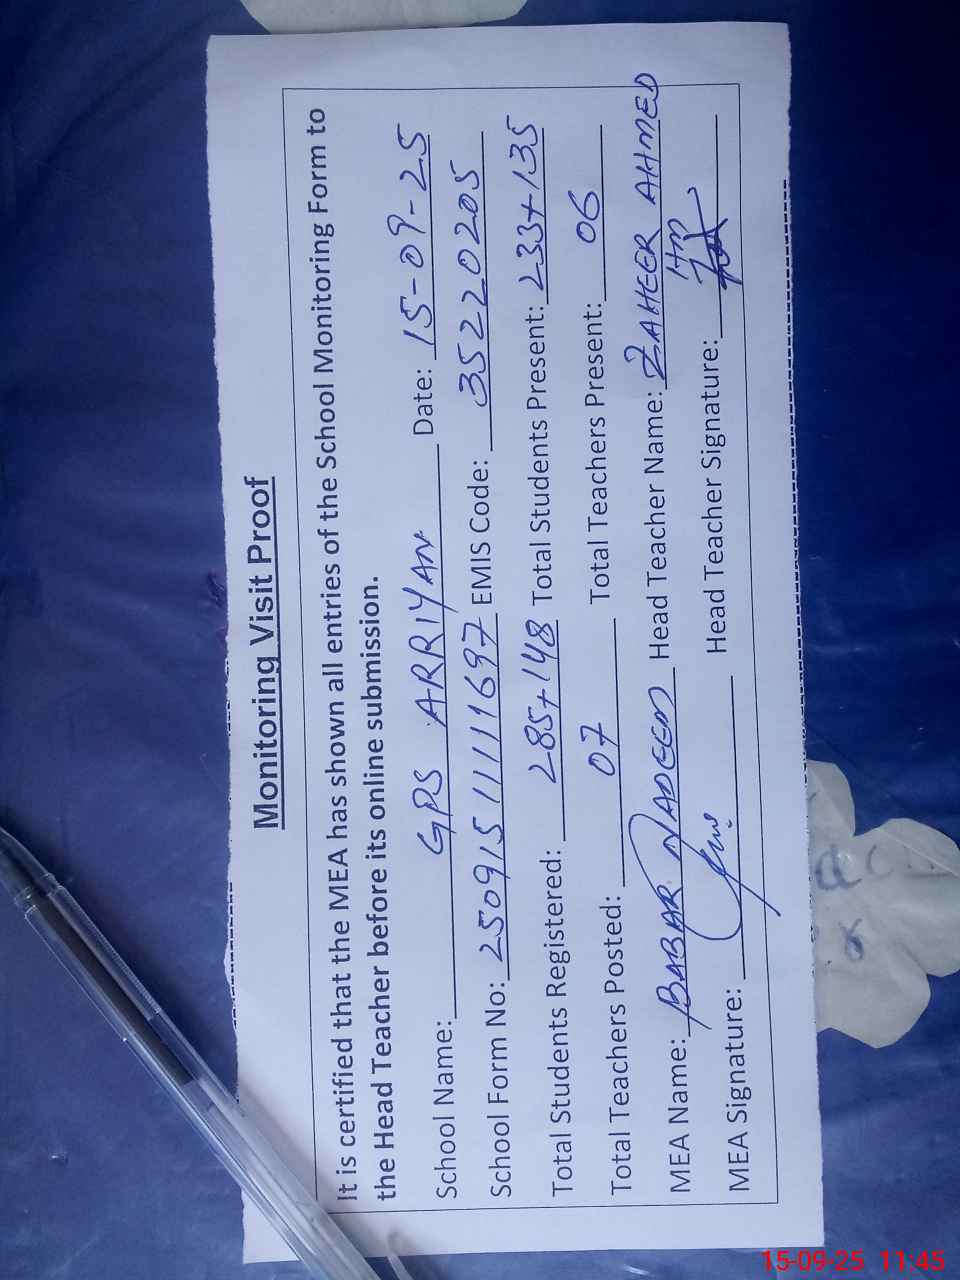 Monitoring Visit Proof
It is certified that the MEA has shown all entries of the School Monitoring Form to
the Head Teacher before its online submission.
School Name: GPS ARRIYAN Date: 15-09-25
School Form No: 250915111111697 EMIS Code: 35220205
Total Students Registered: 285+148 Total Students Present: 233+135
Total Teachers Posted: 07 Total Teachers Present: 06
MEA Name: BABAR NADEEM Head Teacher Name: ZAHEER AHMED
MEA Signature: Head Teacher Signature:
15-09-25 11:45